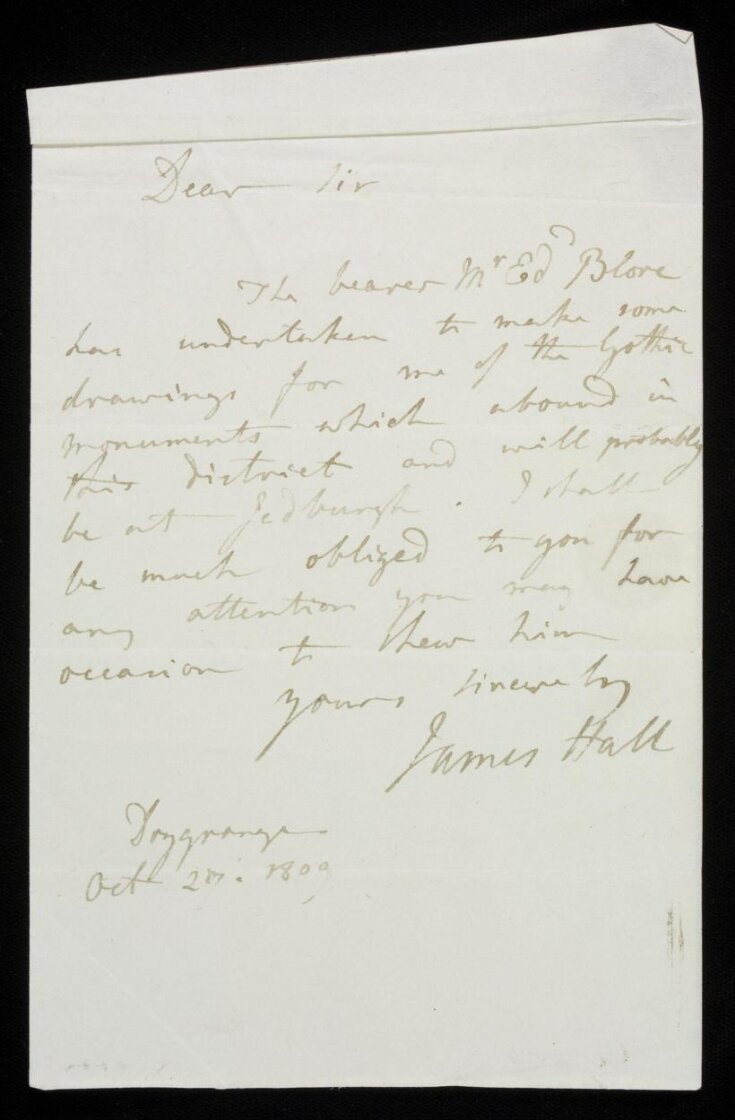 Dear Sir
The bearer Mr Edd Blore
has undertaken to make some
drawings for me of the Gothic
monuments which abound in
this district and will probably
be at Jedburgh. I shall
be much obliged to you for
any attention you may have
occasion to shew him
yours sincerely
James Hall
Drygrange
Oct 1809